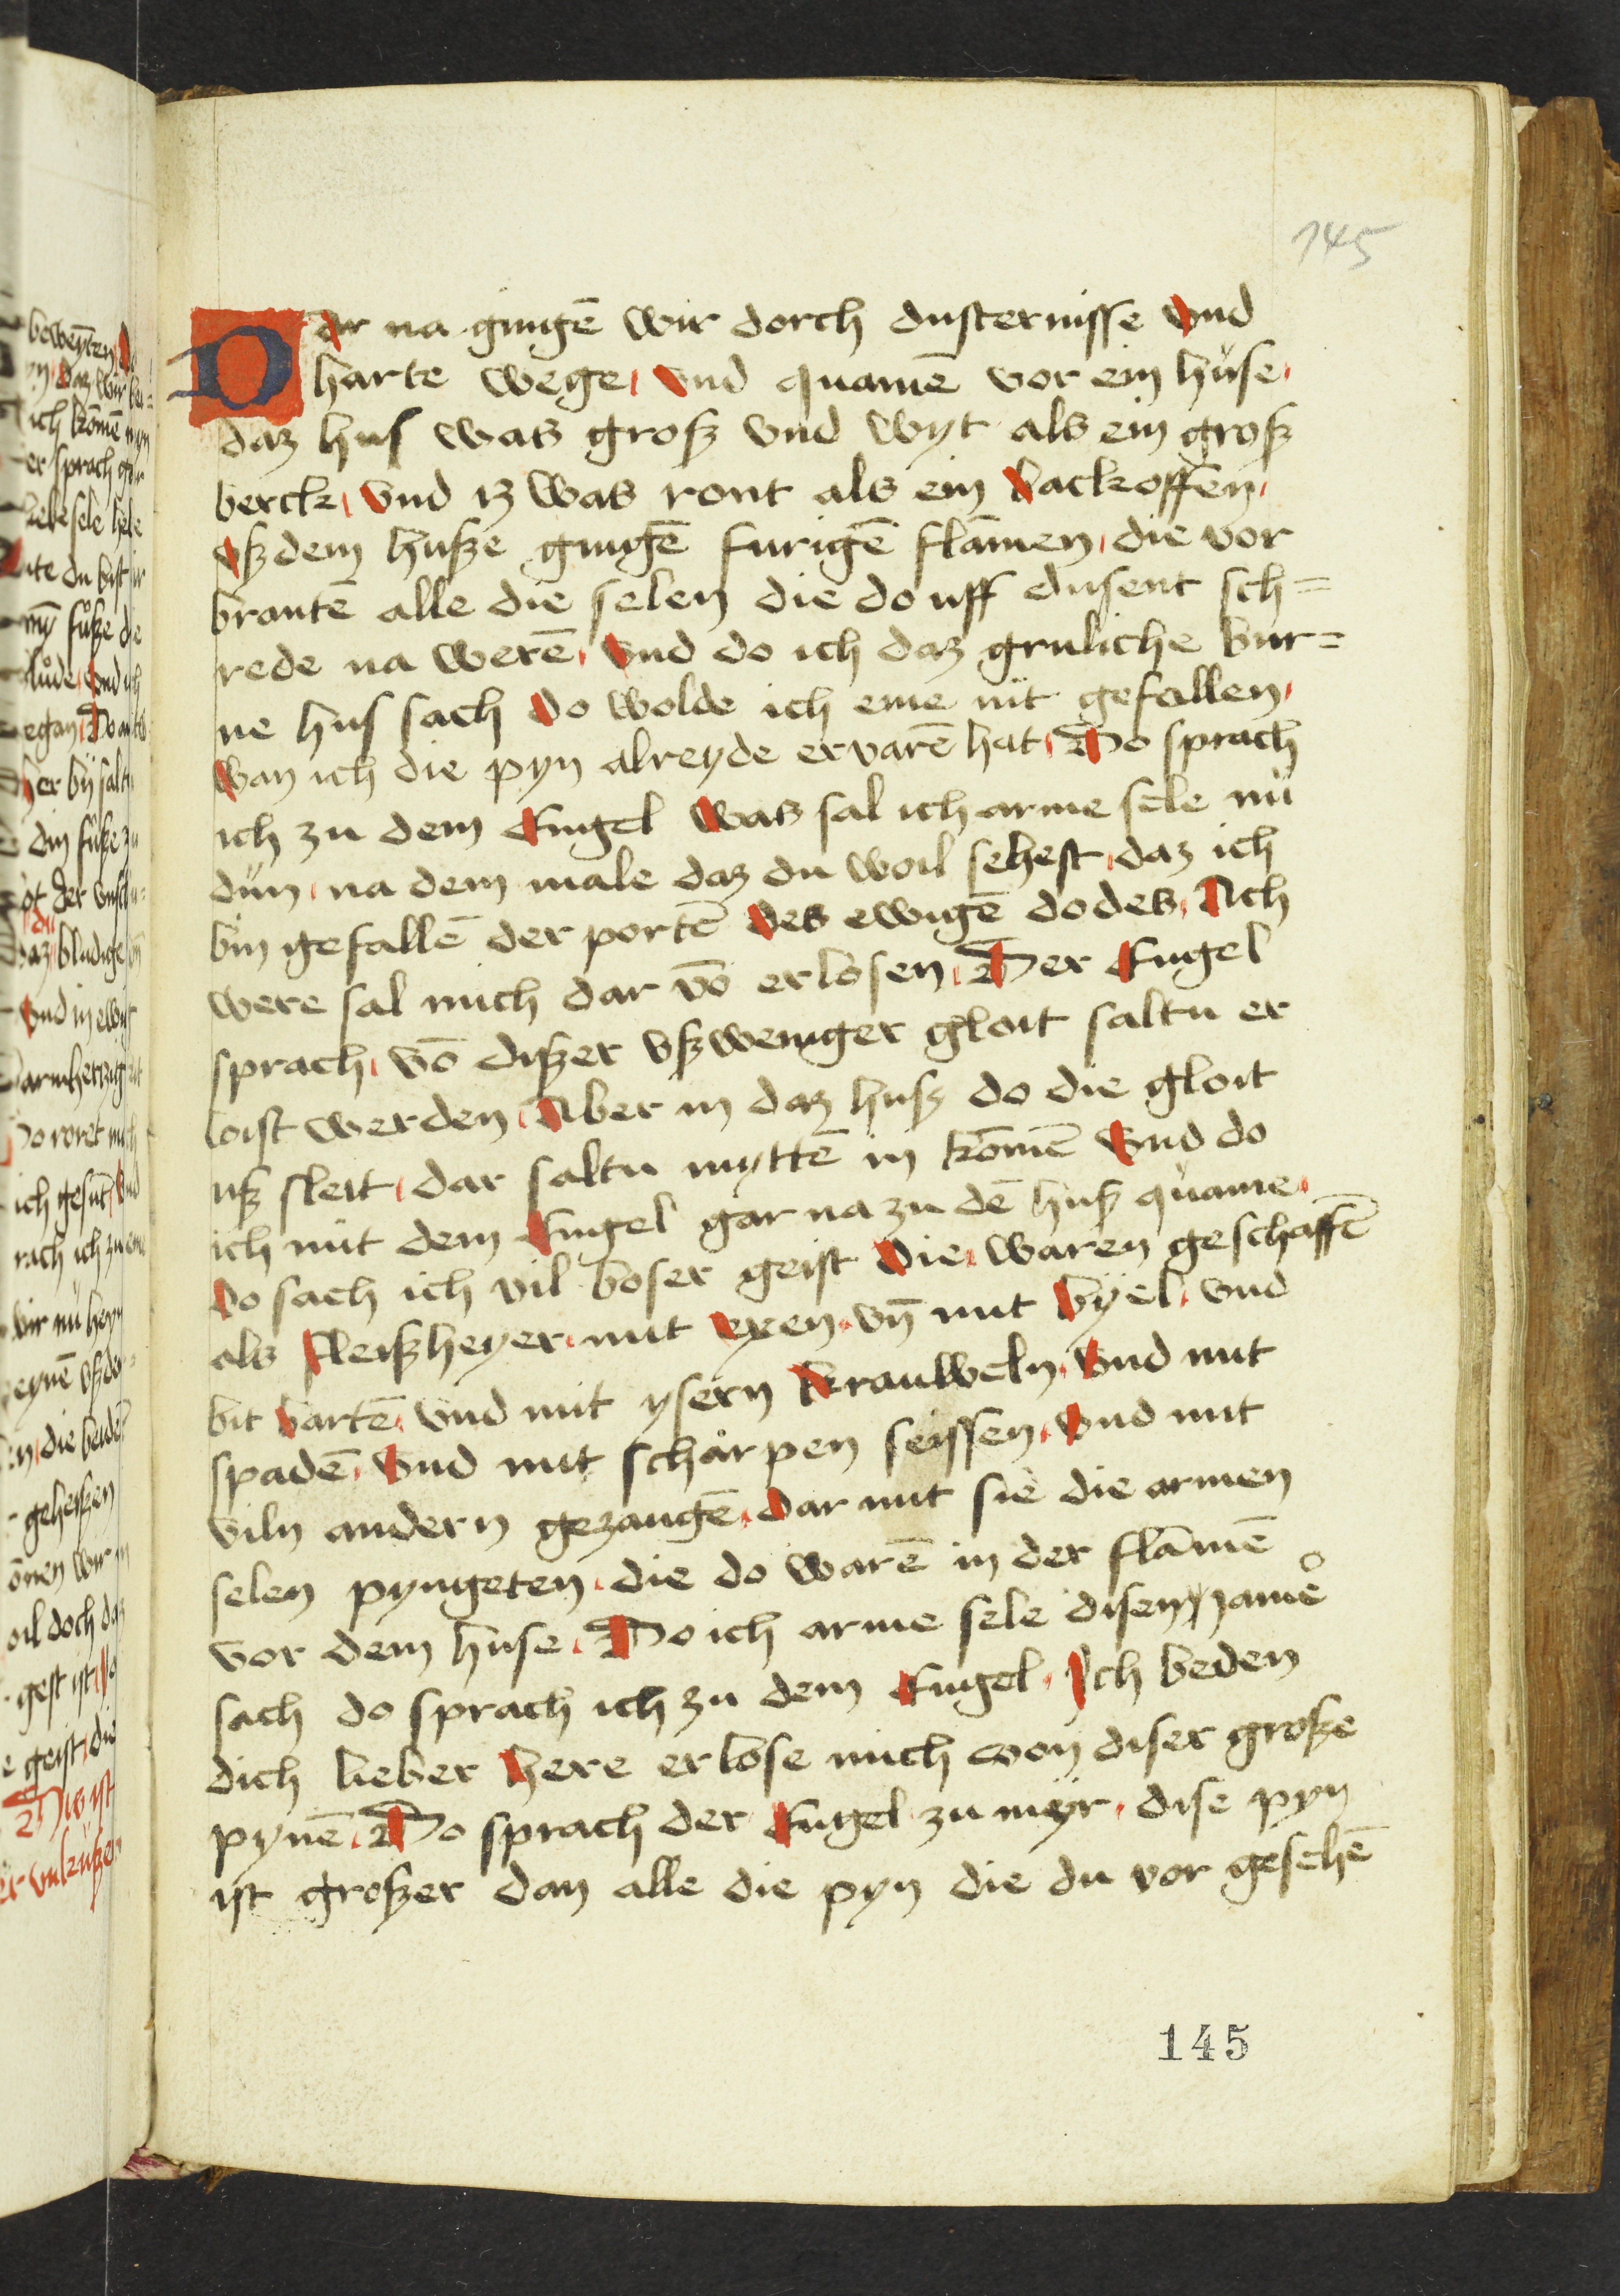 145
Dar na gingē wir dorch dusternisse vnd
harte wege, vnd quamē vor ein huse,
daz hus was groß vnd wyt als ein groß
berck, vnd iz was ront als ein backoffen,
vß dem huße gingē furigē flāmen, die vor
brantē alle die selen die do uff dusent sch=
rede na werē, vnd do ich daz gruliche bur=
ne hus sach do wolde ich eme nit gefallen,
wan ich die pyn alreyde ervarē hat, Do sprach
ich zu dem Engel was sal ich arme sele nü
dün, na dem male daz du woil sehest, daz ich
bin gefallē der portē des ewigē dodes, Ach
were sal mich dar vō erlosen, Der Engel
sprach, vō dißer vßweniger gloit saltu er
loist werden, Aber in daz huß do die gloit
uß sleit, dar saltu myttē in kōmē vnd do
ich mit dem Engel gar na zu dē huß quame,
do sach ich vil boser geist die, waren geschaffē
als fleißheyer, mit exen, vn̄ mit byel, vnd
bit bartē, vnd mit ysern krauweln, vnd mit
spadē, vnd mit scharpen seissen, vnd mit
viln andern gezangē, dar mit sie die armen
selen pyngeten, die do warē in der flāmē
vor dem huse, Do ich arme sele disen jamer
sach do sprach ich zu dem Engel, Ich beden
dich lieber here erlose mich von diser große
pynē, Do sprach der Engel zu myr, dise pyn
ist großer dan alle die pyn die du vor gesehē
145